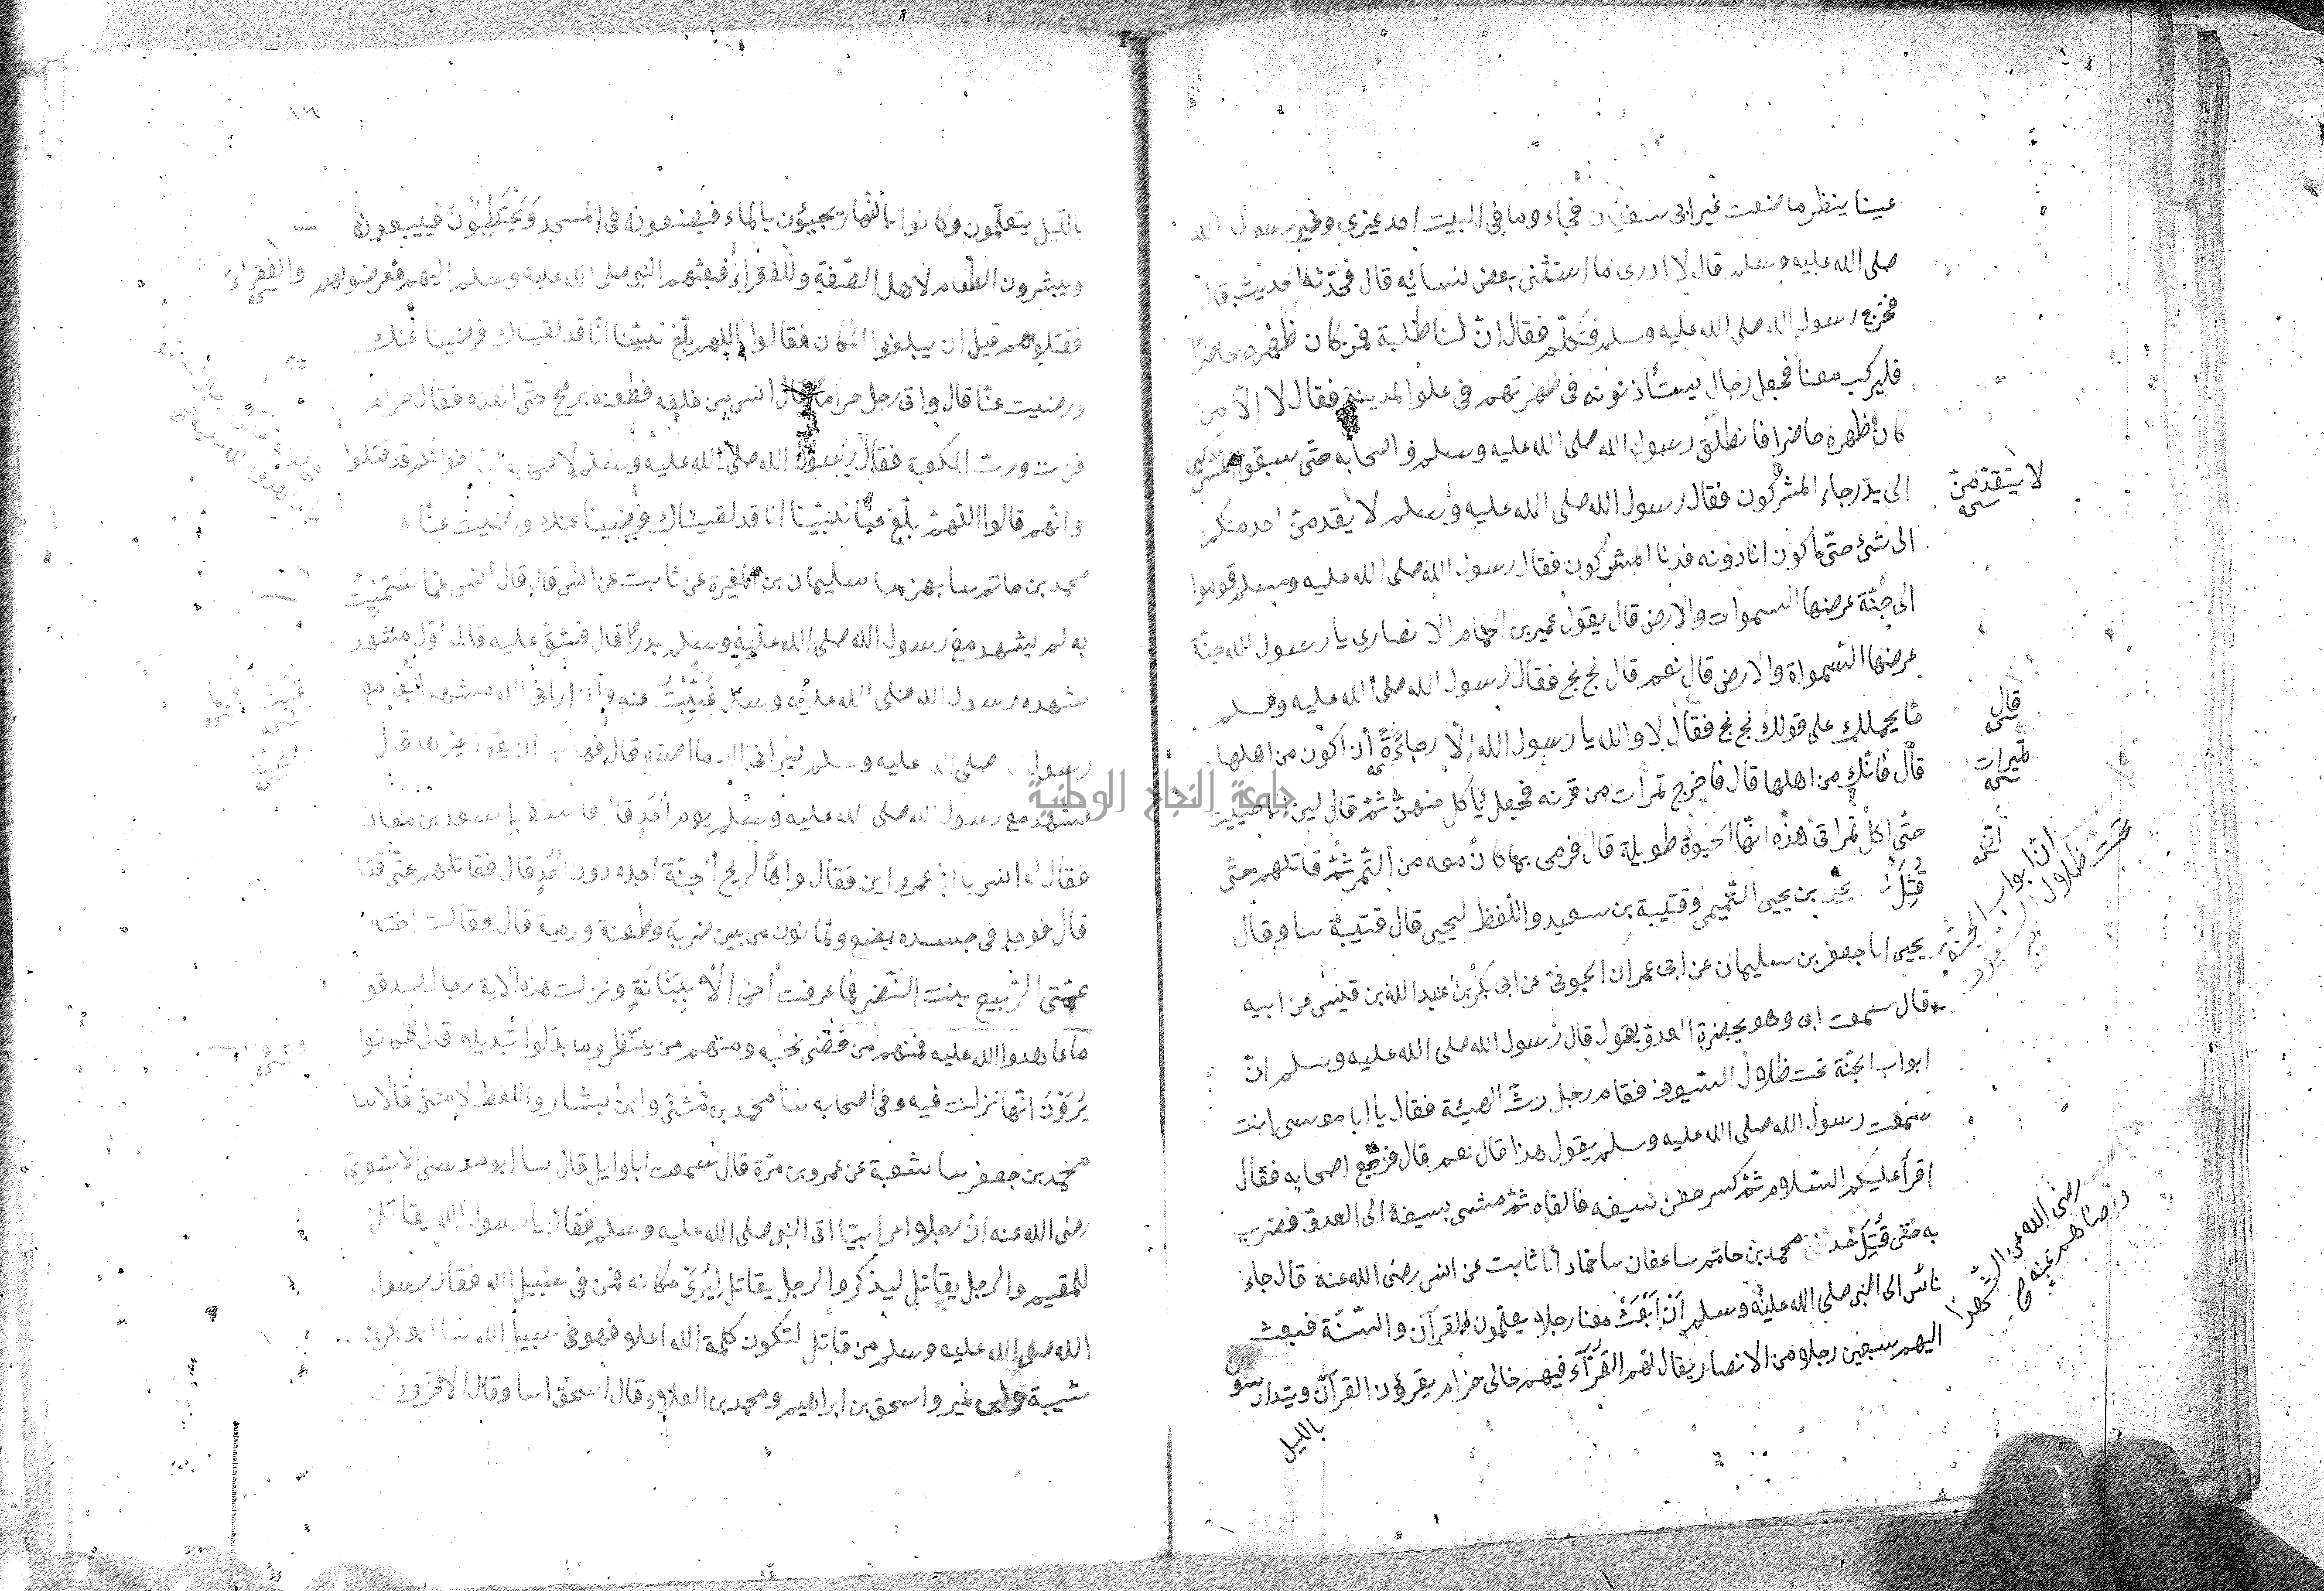 عينا ينظر ما صنعت عير ابى سفيان فجاء وما فى البيت احد غيرى وغير رسول الله
صلى الله عليه وسلم قال لا ادرى ما استثنى بعض نسائه قال فحدثه الحديث قال
فخرج رسول الله صلى الله عليه وسلم فتكلّم فقال انّ لنا طلبة فمن كان ظهره حاضرًا
فليركب معنا فجعل رجال يستأذنونه فى ظهرتهم فى علو المدينة فقال لا الّا من
كان ظهره حاضرا فانطلق رسول الله صلى الله عليه وسلم واصحابه حتّى سبقوا المشركين
الى بدر جاء المشركون فقال رسول الله صلى الله عليه وسلم لا يقدمنّ احد منكم
الى شئ حتّى اكون انا دونه فدنا المشركون فقال رسول الله صلى الله عليه وسلم قوموا
الى جنّة عرضها السموات والارض قال يقول عمير بن الحمام الانصارى يا رسول الله جنّة
عرضها السمواة والارض قال نعم قال بخ بخ فقال رسول الله صلى الله عليه وسلم
ما يحملك على قولك بخ بخ فقال لا والله يا رسول الله الّا رجاءَةً أن اكون من اهلها
قال فانّك من اهلها قال فاخرج تمرات من قرنه فجعل يأكل منهنّ ثمّ قال لين انا حييت
حتّى اكل تمراتى هذه انّها لحيوة طويلة قال فرمى بما كان معه من التّمر ثمّ قاتلهم حتّى
قُتِلَ يحيى بن يحيى التّميمى وقتيبة بن سعيد واللّفظ ليحيى قال قتيبة سا وقال
يحيى انا جعفر بن سليمان عن ابى عمران الجونىّ عن ابى بكر بن عبد الله بن قيس عن ابيه
قال سمعت ابى وهو بحضرة العدوّ يقول قال رسول الله صلى الله عليه وسلم انّ
ابواب الجنّة تحت ظلال السّيوف فقام رجل رثّ الهيئة فقال يا ابا موسى انت
سمعت رسول الله صلى الله عليه وسلم يقول هذا قال نعم قال فرجع اصحابه فقال
اقرأ عليكم السّلام ثمّ كسر جفن سيفه فالقاه ثمّ مشى بسيفه الى العدوّ فضرب
به حتّى قُتِلَ حدثنى محمد بن حاتم سا عفان سا حمّاد انا ثابت عن انس رضى الله عنه قال جاء
ناس الى النبى صلى الله عليه وسلم ان ابعث معنا رجلا يعلّمون القرآن والسّنّة فبعث
اليهم سبعين رجلا من الانصار يقال لهم القرّآء فيهم خالى حرام يقرؤن القرآن ويتدارسون
بالليل
لا يتقدّمنّ
قال
تميرات
ان ابواب الجنة
تحت ظلال السيوف
رضى الله عن الشهدا
ورضاهم عنه
بالّليل يتعلّمون وكانوا بالنّهار يجيؤن بالماء فيضعونه فى المسجد وَيَحْتَطِبُوْنَ فيبيعونه
ويشترون الطّعام لاهل الصّفّة وللفقراء فبعثهم النبى صلى الله عليه وسلم اليهم فعرضوا لهم
فقتلوهم قبل ان يبلغوا المكان فقالوا اللهم بلّغ نبيّنا انّا قد لقيناك فرضينا عنك
ورضيت عنّا قال واتى رجل حراما خال انس من خلفه فطعنه برمح حتّى انفذه فقال حرام
فزت وربّ الكعبة فقال رسول الله صلى الله عليه وسلم لاصحابه انّ اخوانكم قد قتلوا
وانّهم قالوا اللّهمّ بلّغ عنّا نبيّنا انّا قد لقيناك فرضينا عنك ورضيت عنّا
محمد بن حاتم سا بهز سا سليمان بن المغيرة عن ثابت عن انس قال قال انس عمّى سُمّيتُ
به لم يشهد مع رسول الله صلى الله عليه وسلم بدرًا قال فشقّ عليه قال اوّل مشهد
شهده رسول الله صلى الله عليه وسلم غُيِّبْتُ عنه وان ارانى الله مشهدا بعد مع
رسول الله صلى الله عليه وسلم ليرانى الله ما اصنع قال فهاب ان يقول غيرها قال
فشهد مع رسول الله صلى الله عليه وسلم يوم اُحُدٍ قال فاستقبل سعد بن معاذ
فقال له انس يا ابا عمرو اين فقال واهًا لريح الجنّة اجده دون اُحُدٍ قال فقاتلهم حتّى قتل
قال فوجد فى جسده بضع وثمانون من بين ضربة وطعنة ورمية قال فقالت اخته
عمّتى الرّبيع بنت النّضر فما عرفت أخى الّا بِبَنَانِهِ ونزلت هذه الآية رجال صدقوا
ما عاهدوا الله عليه فمنهم من قضى نحبه ومنهم من ينتظر وما بدّلوا تبديلا قال فكانوا
يُرَوْنَ انّها نزلت فيه وفى اصحابه سا محمد بن مثنّى وابن بشار واللفظ لابن مثنى قالا سا
محمّد بن جعفر سا شعبة عن عمرو بن مرّة قال سمعت ابا وايل قال سا ابو موسى الاشعرى
رضى الله عنه انّ رجلا اعرابيّا اتى النبى صلى الله عليه وسلم فقال يا رسول الله يقاتل
للمغنم والرجل يقاتل ليذكر والرجل يقاتل لِيُرَىَ مكانه فمن فى سبيل الله فقال رسول
الله صلى الله عليه وسلم من قاتل لتكون كلمة الله اعلا فهو فى سبيل الله سا ابو بكر بن
شيبة وابن نمير واسحق بن ابراهيم ومحمد بن العلاء قال اسحق انا وقال الآخرون
والفقراء
غبت
جامعة النجاح الوطنية